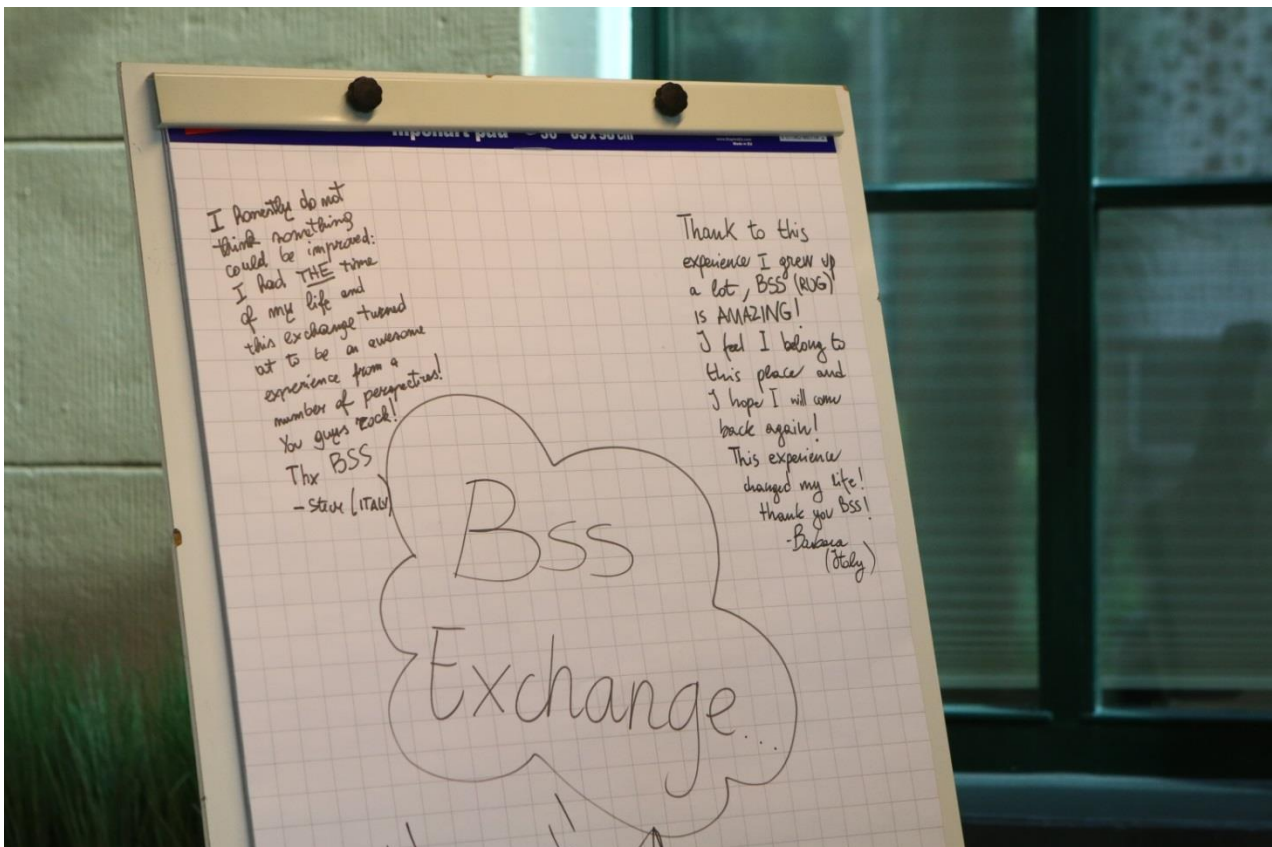 I honestly do not
think something
could be improved:
I had THE time
of my life and
this exchange turned
at to be an awesome
experience from a
number of perspectives!
You guys rock!
Thx BSS
- Steve (ITALY)
Thank to this
experience I grew up
a lot, BSS (RUG)
is AMAZING!
I feel I belong to
this place and
I hope I will come
back again!
This experience
changed my life!
thank you BSS!
- Barbara
(Italy)
Bss
Exchange...